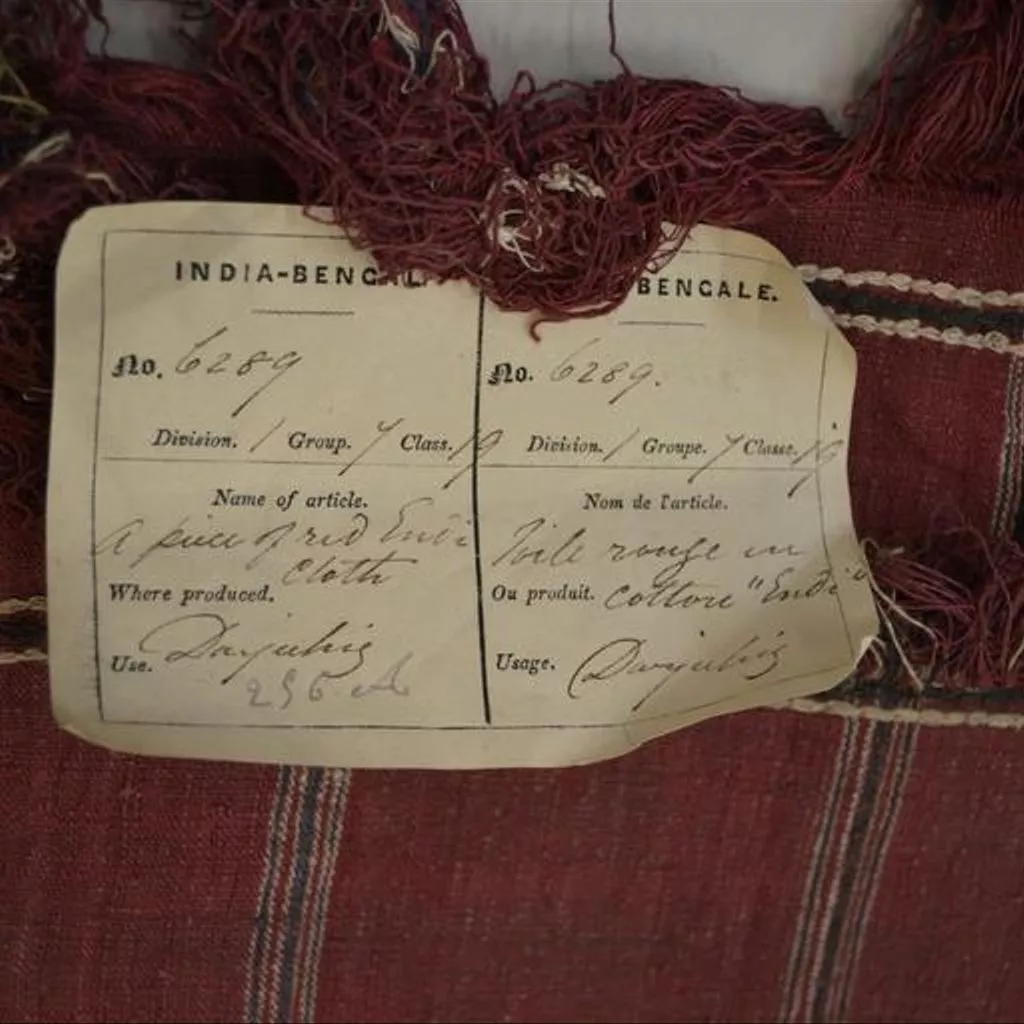 INDIA-BENGAL
No. 6289
Division. / Group. 7 Class. 19
Name of article.
A piece of red Endi
cloth
Where produced.
Darjuling
Use.
BENGALE.
No. 6289.
Division. / Groupe. 7 Classe. 19
Nom de l'article.
Toile rouge en
Ou produit. cotton "Endi"
Usage. Darjuling